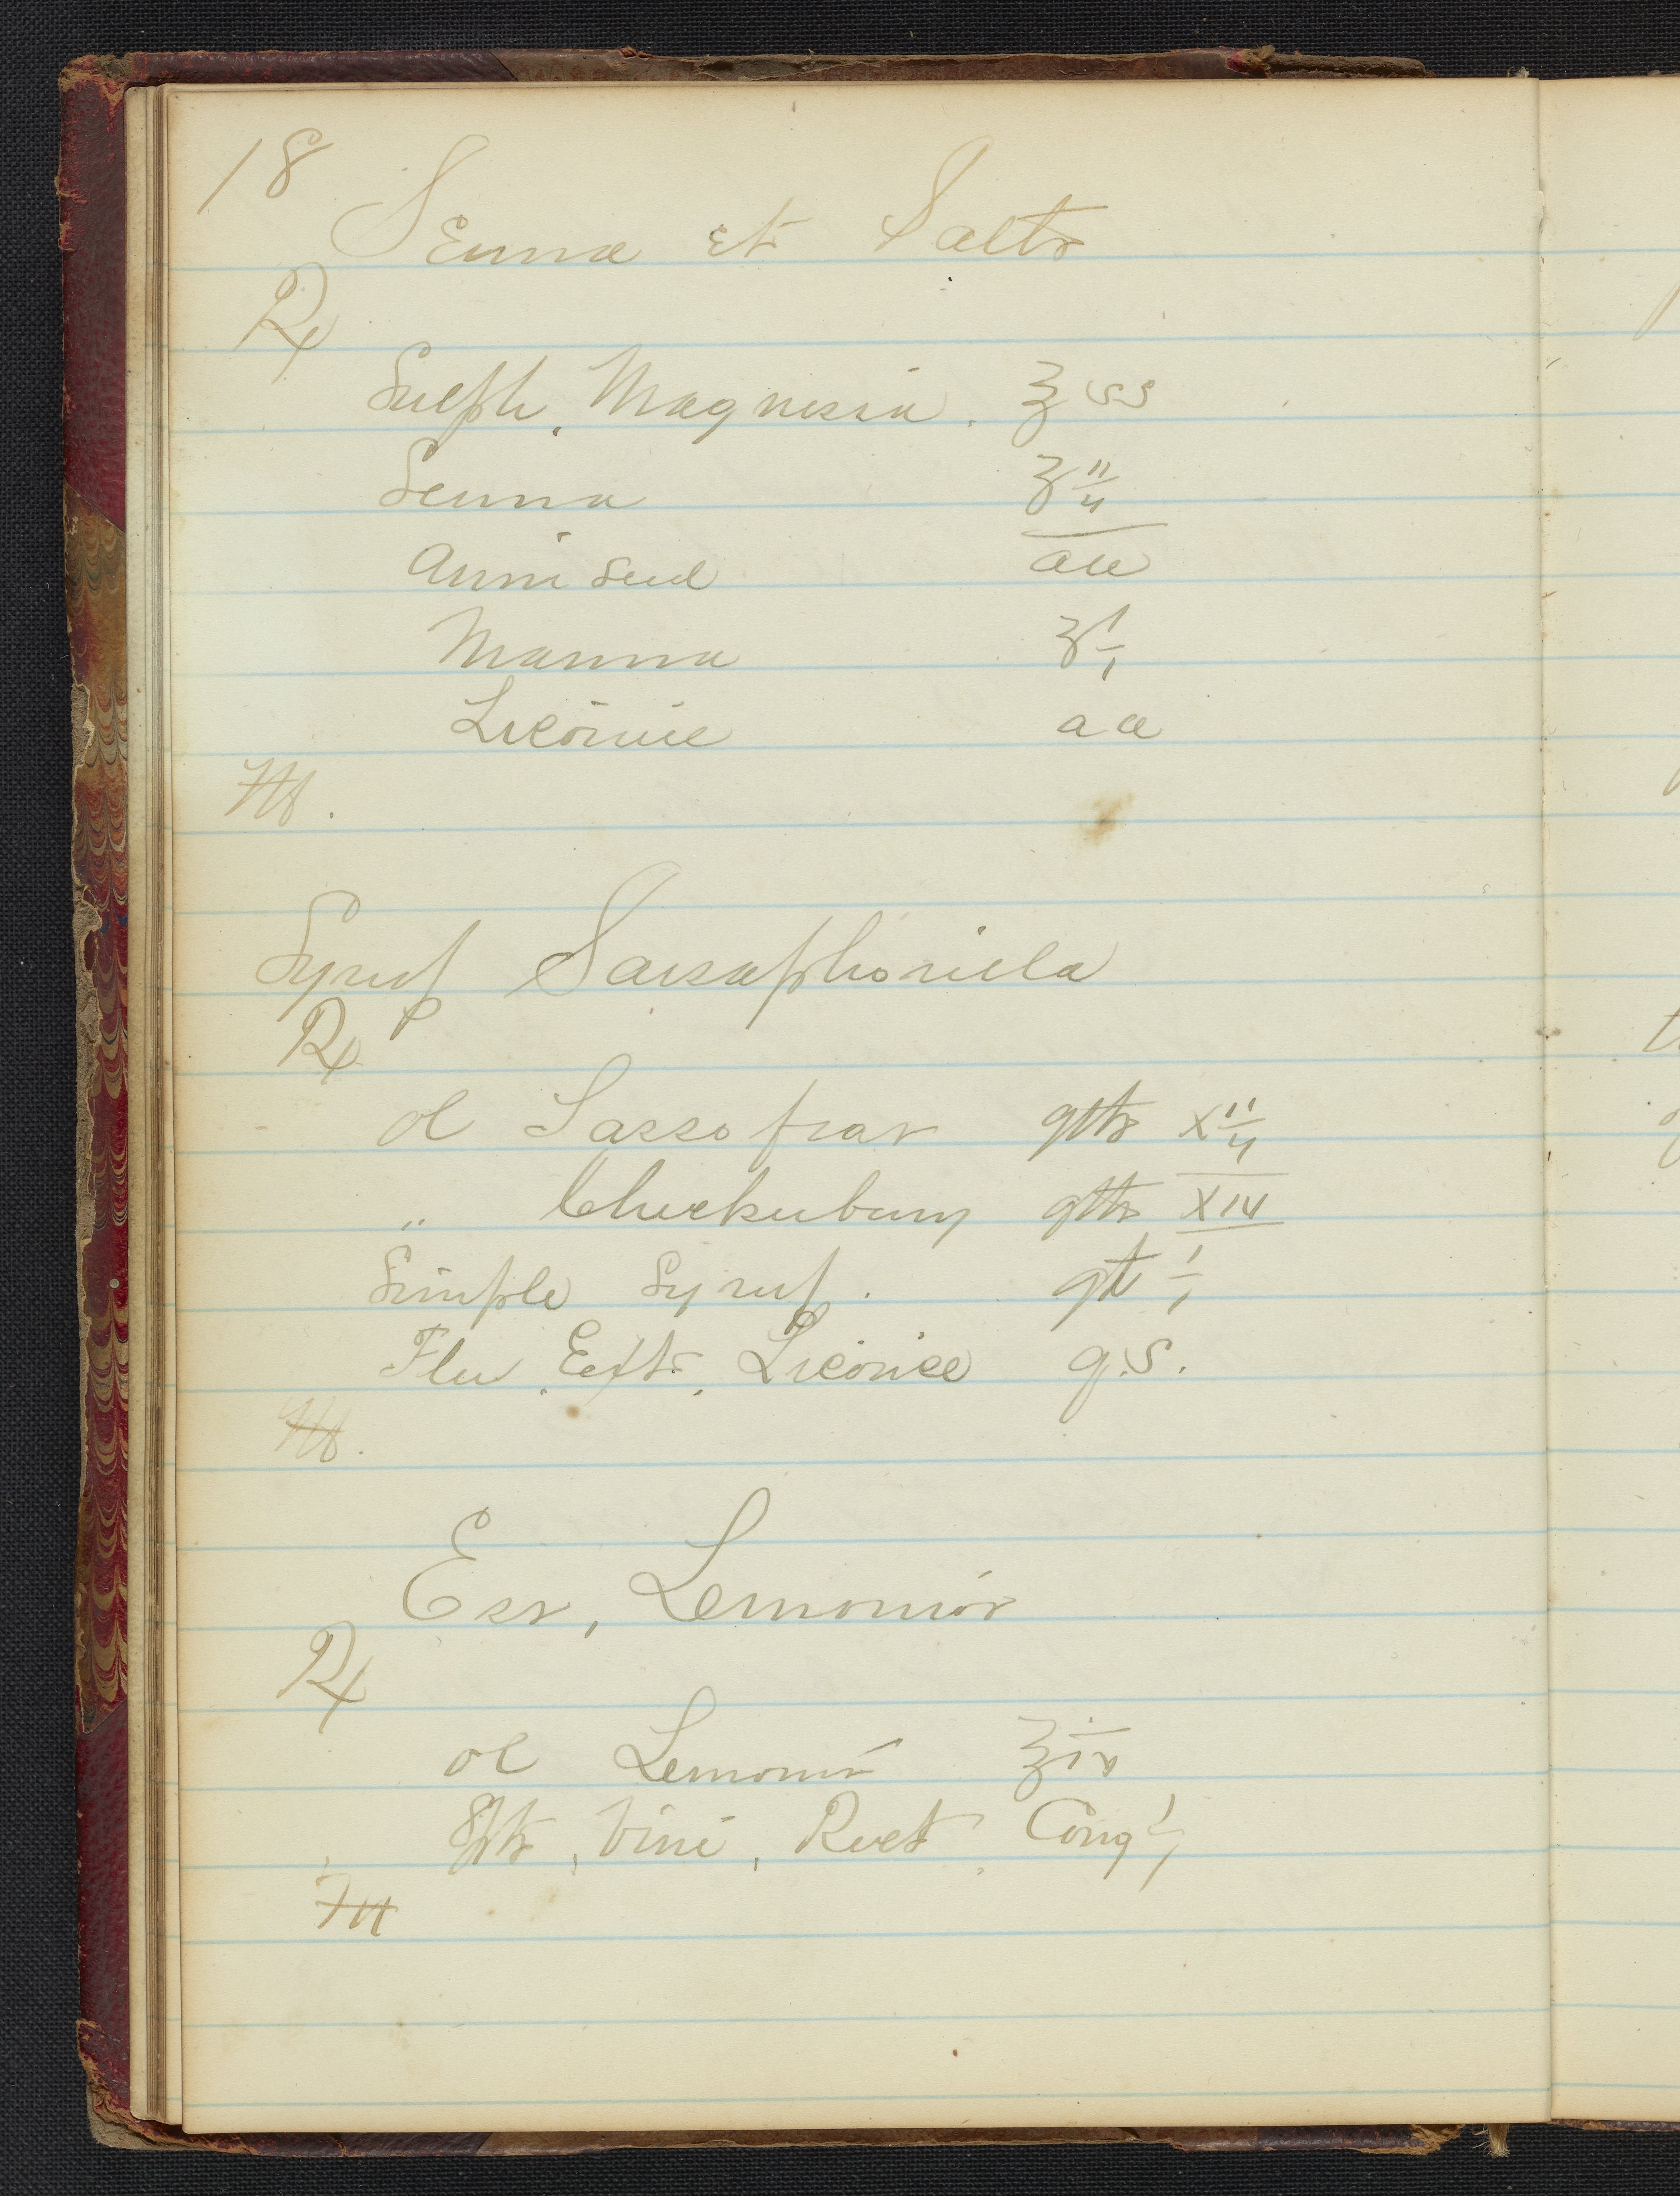 18
Senna et Salts
℞
Sulph. Magnesia. ℥ ss
Senna ʒ ii
Anni seed aa
Manna ʒ i
Licorice aa
M.
Syrup Sarsaphoriella
℞
Ol Sassofras gtts xii
" Checkerberry gtts XIV
Simple Syrup. qt i
Flu. Ext. Licorice q.s.
M.
Ess, Lemonios
℞
Ol Lemonis ℥ iv
Spts, Vini, Rect. Cong i
M